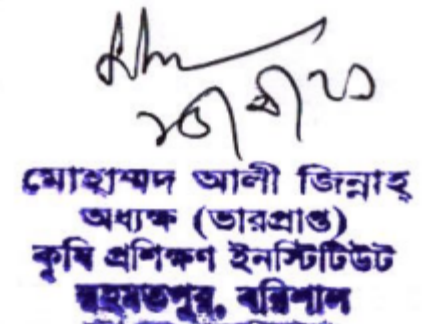 মোহাম্মদ আলী জিন্নাহ্
অধ্যক্ষ (ভারপ্রাপ্ত)
কৃষি প্রশিক্ষণ ইনস্টিটিউট
রহমতপুর, বরিশাল